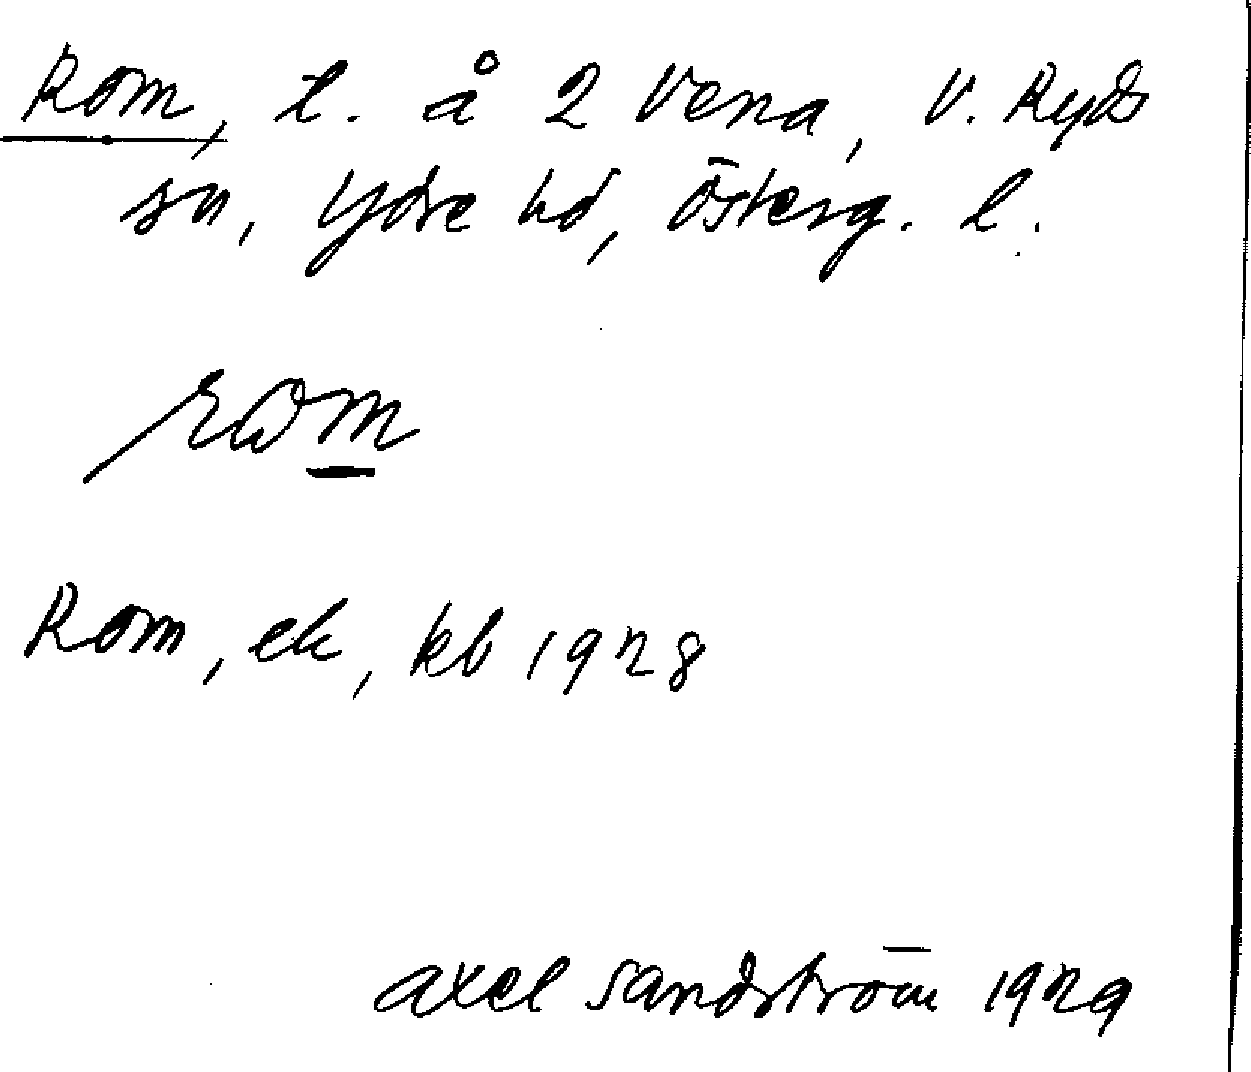 Rom, l. å 2 Vena, V. Ryds
sn, Ydre hd, Österg. l.
rωm
Rom, ek, kb 1928
Axel Sandström 1929